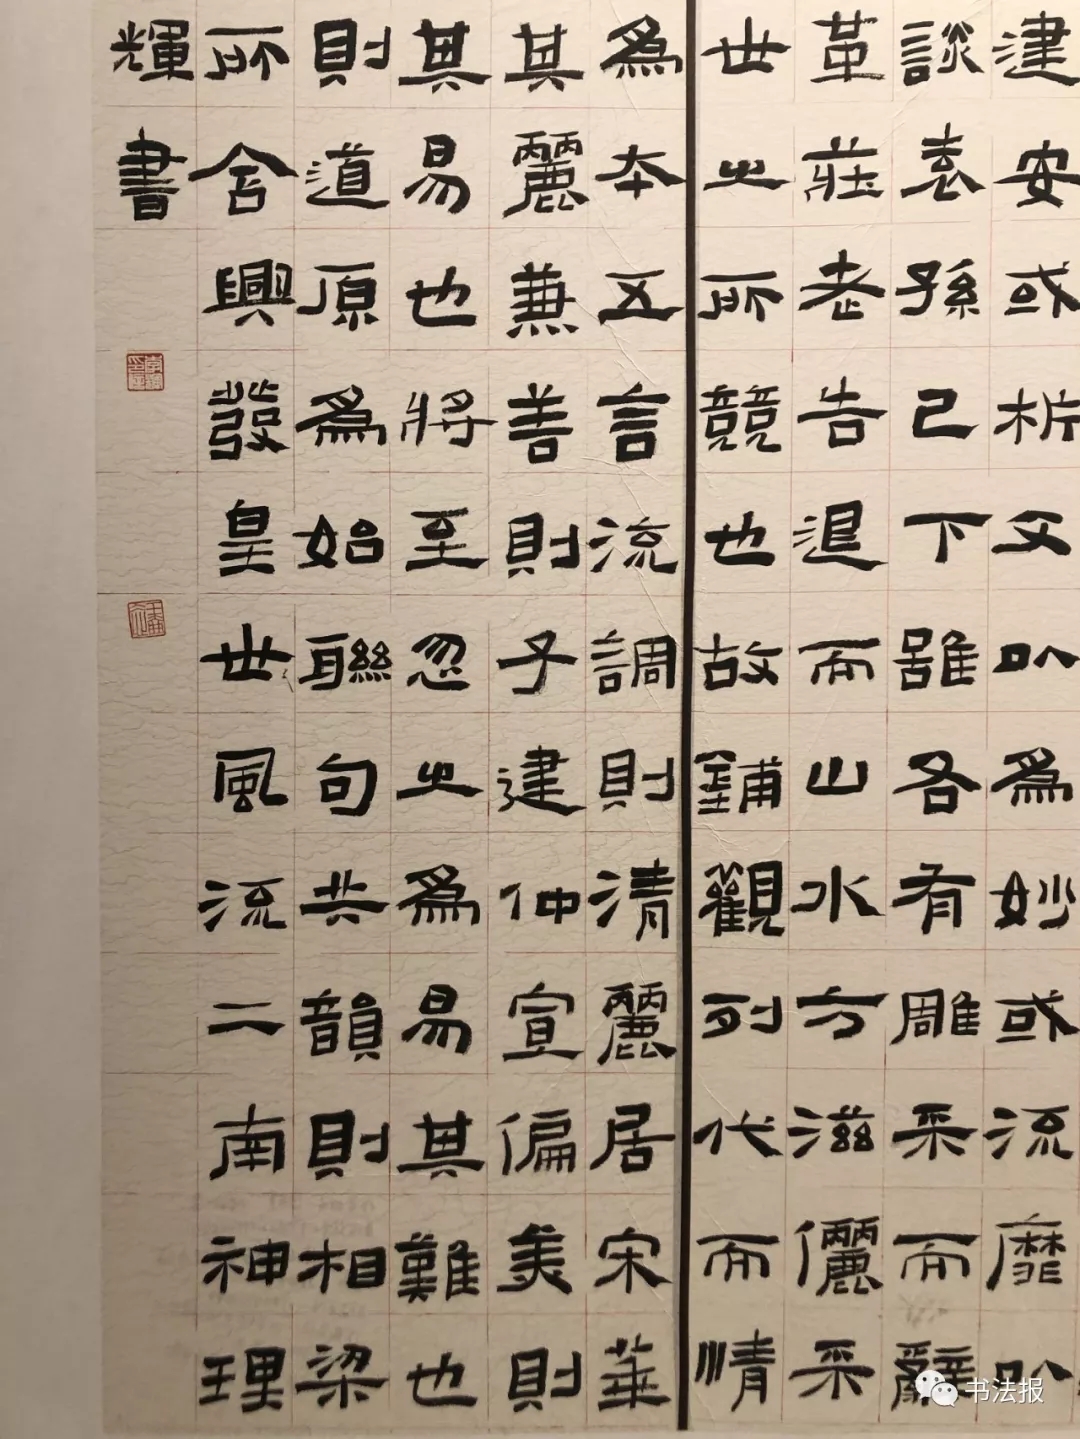 建安或析文以爲妙或流靡以
談袁孫已下雖各有雕采而辭
革莊老告退而山水方滋儷采
世之所競也故鋪觀列代而情
爲本五言流調則清麗居宋華
其麗兼善則子建仲宣偏美則
其易也將至忽之爲易其難也
則道原爲始聯句共韻則相梁
所含興發皇世風流二南神理
輝書
书法报